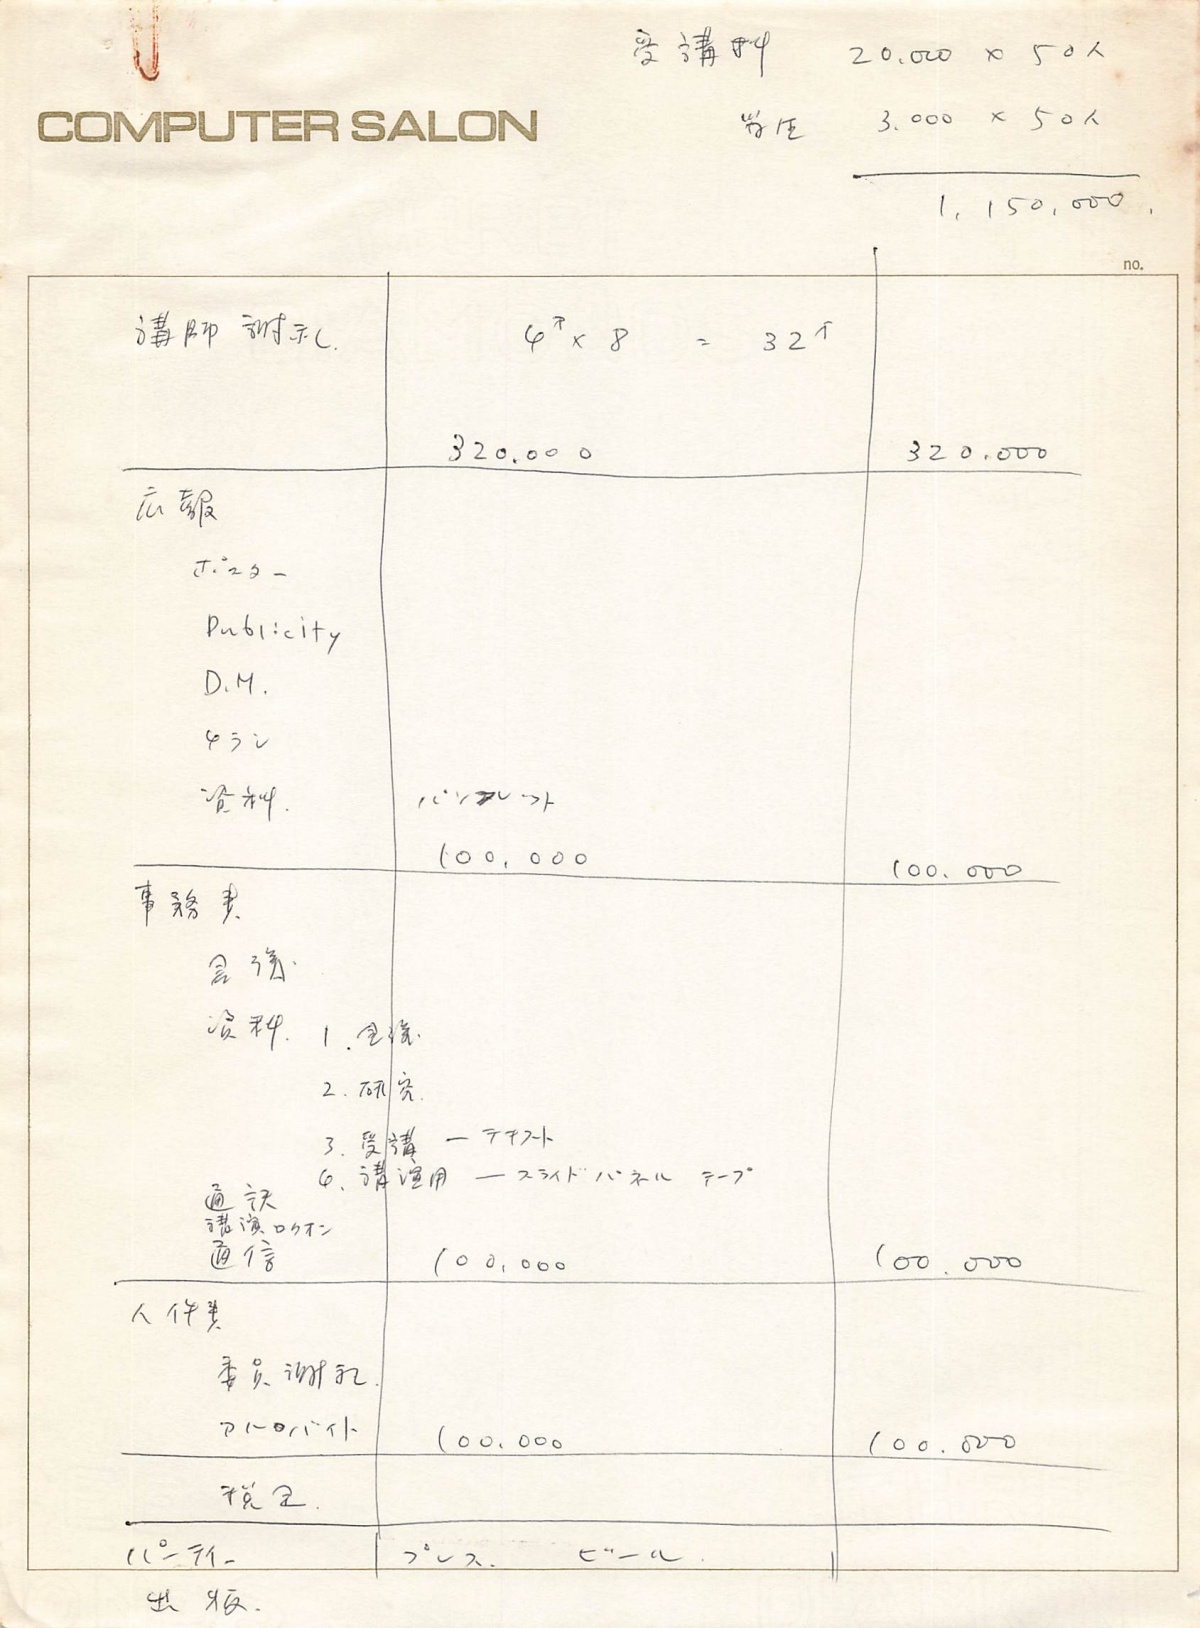 受講料 20.000 × 50人
COMPUTER SALON
学生 3.000 × 50人
1,150,000.
no.
講師謝礼. 4万 × 8 = 32万
320.000 320.000
広報
ポスター
Publicity
D.M.
チラシ
資料. パンフレット
100,000 100.000
事務費
会議
資料. 1. 会議
2. 研究.
3. 受講 ー テキスト
4. 講演用 ー スライド パネル テープ
通訳
講演ロクオン
通信 100,000 100.000
人件費
委員謝礼.
アルバイト 100.000 100.000
税金.
パーティー プレス. ビール.
出版.